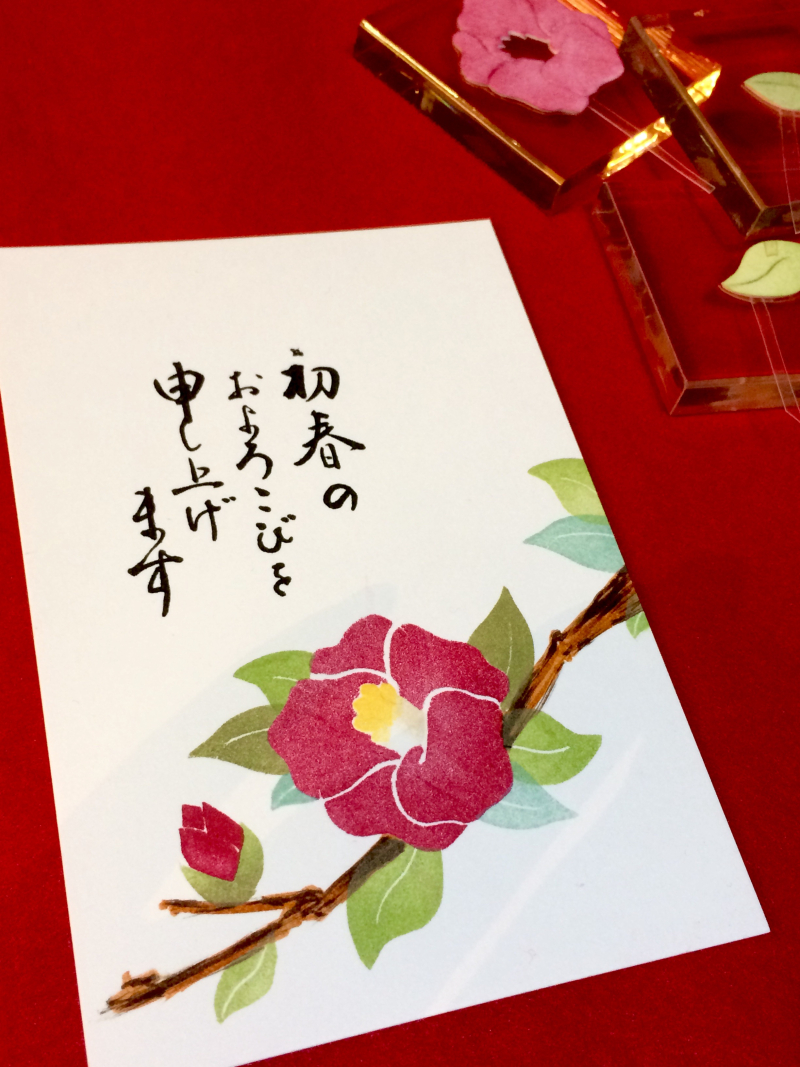 初春の
およろこびを
申し上げ
ます